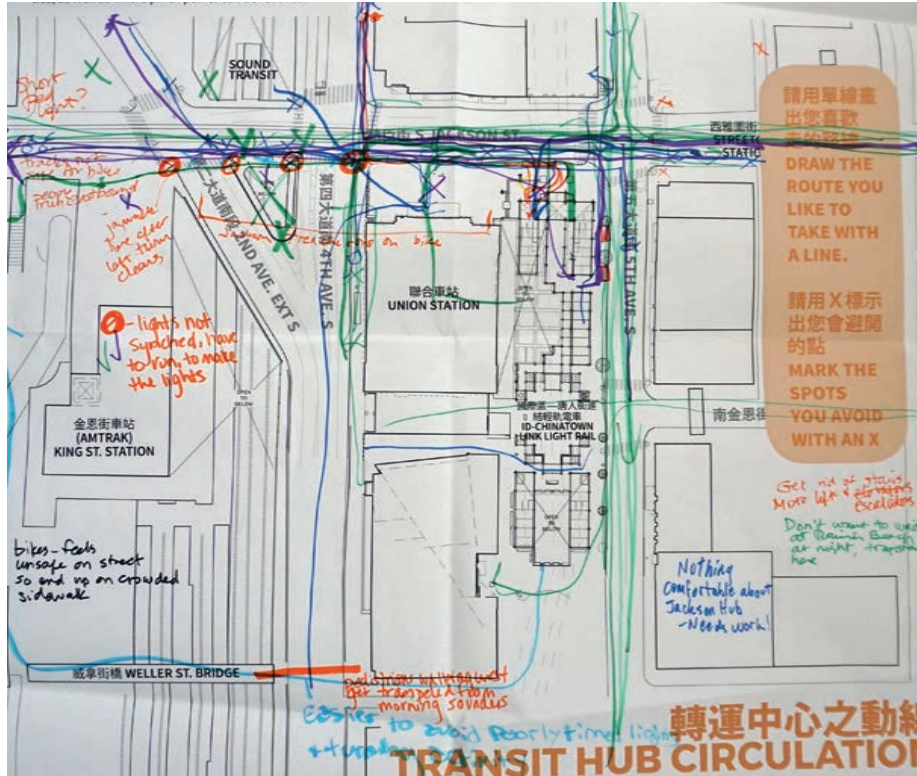 SOUND
TRANSIT
Short
Ped
light?
S JACKSON ST.
西雅圖街
STREET
STATIO
請用單線畫
出您喜歡
走的路線
DRAW THE
ROUTE YOU
LIKE TO
TAKE WITH
A LINE.
請用 X 標示
出您會避開
的點
MARK THE
SPOTS
YOU AVOID
WITH AN X
tracks not
on bike
people
eastbound
jaywalk
time after
left turn
clears
on bike
大道南段 2ND AVE. EXT S
第四大道南 4TH AVE. S
5TH AVE. S
聯合車站
UNION STATION
OPEN
TO
BELOW
- lights not
synched, have
to run, to make
the lights
OPEN
TO
BELOW
金恩街車站
(AMTRAK)
KING ST. STATION
國際區—唐人街連
結輕軌電車
ID-CHINATOWN
LINK LIGHT RAIL
南金恩街
OPEN
TO
BELOW
Get rid of stairs
More lifts & escalators
Don't want to
at Beach
at night,
here
bikes - feels
unsafe on street
so end up on crowded
sidewalk
Nothing
comfortable about
Jackson Hub
- Needs work!
威拿街橋 WELLER ST. BRIDGE
walking west
get trampled from
morning sounders
Easier to avoid poorly timed light
轉運中心之動線
TRANSIT HUB CIRCULATION